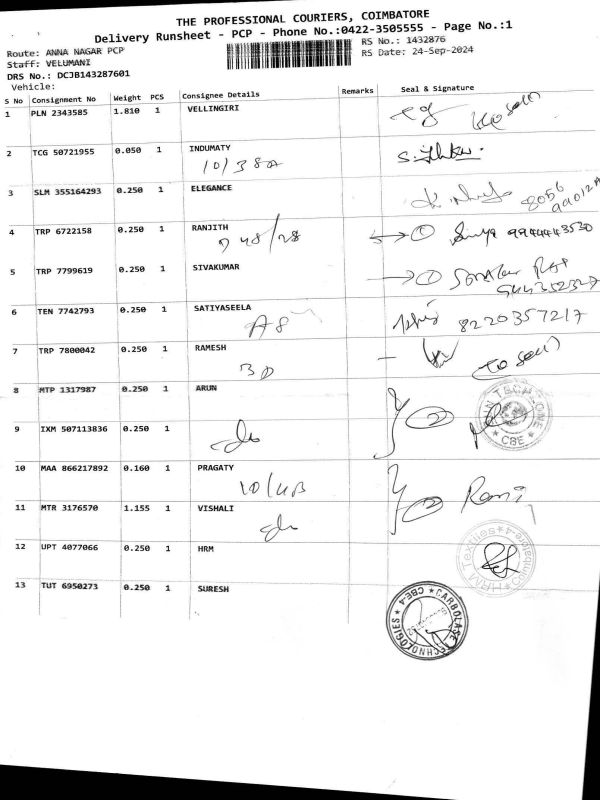 THE PROFESSIONAL COURIERS, COIMBATORE
Delivery Runsheet - PCP - Phone No.:0422-3505555 - Page No.:1
Route: ANNA NAGAR PCP
RS No.: 1432876
Staff: VELUMANI
RS Date: 24-Sep-2024
DRS No.: DCJB143287601
Vehicle:
S No Consignment No Weight PCS Consignee Details Remarks Seal & Signature
1 PLN 2343585 1.810 1 VELLINGIRI
2 TCG 50721955 0.050 1 INDUMATY
10/38A
3 SLM 355164293 0.250 1 ELEGANCE
4 TRP 6722158 0.250 1 RANJITH
48/28
5 TRP 7799619 0.250 1 SIVAKUMAR
6 TEN 7742793 0.250 1 SATIYASEELA
A8 8220357217
7 TRP 7800042 0.250 1 RAMESH
3D
8 MTP 1317987 0.250 1 ARUN
9 IXM 507113836 0.250 1
do
CBE
10 MAA 866217892 0.160 1 PRAGATY
10/4B
11 MTR 3176570 1.155 1 VISHALI
do
12 UPT 4077066 0.250 1 HRM
HRM Textiles * Coimbatore-4
13 TUT 6950273 0.250 1 SURESH
CARBOLASE TECHNOLOGIES * CBE-4 *